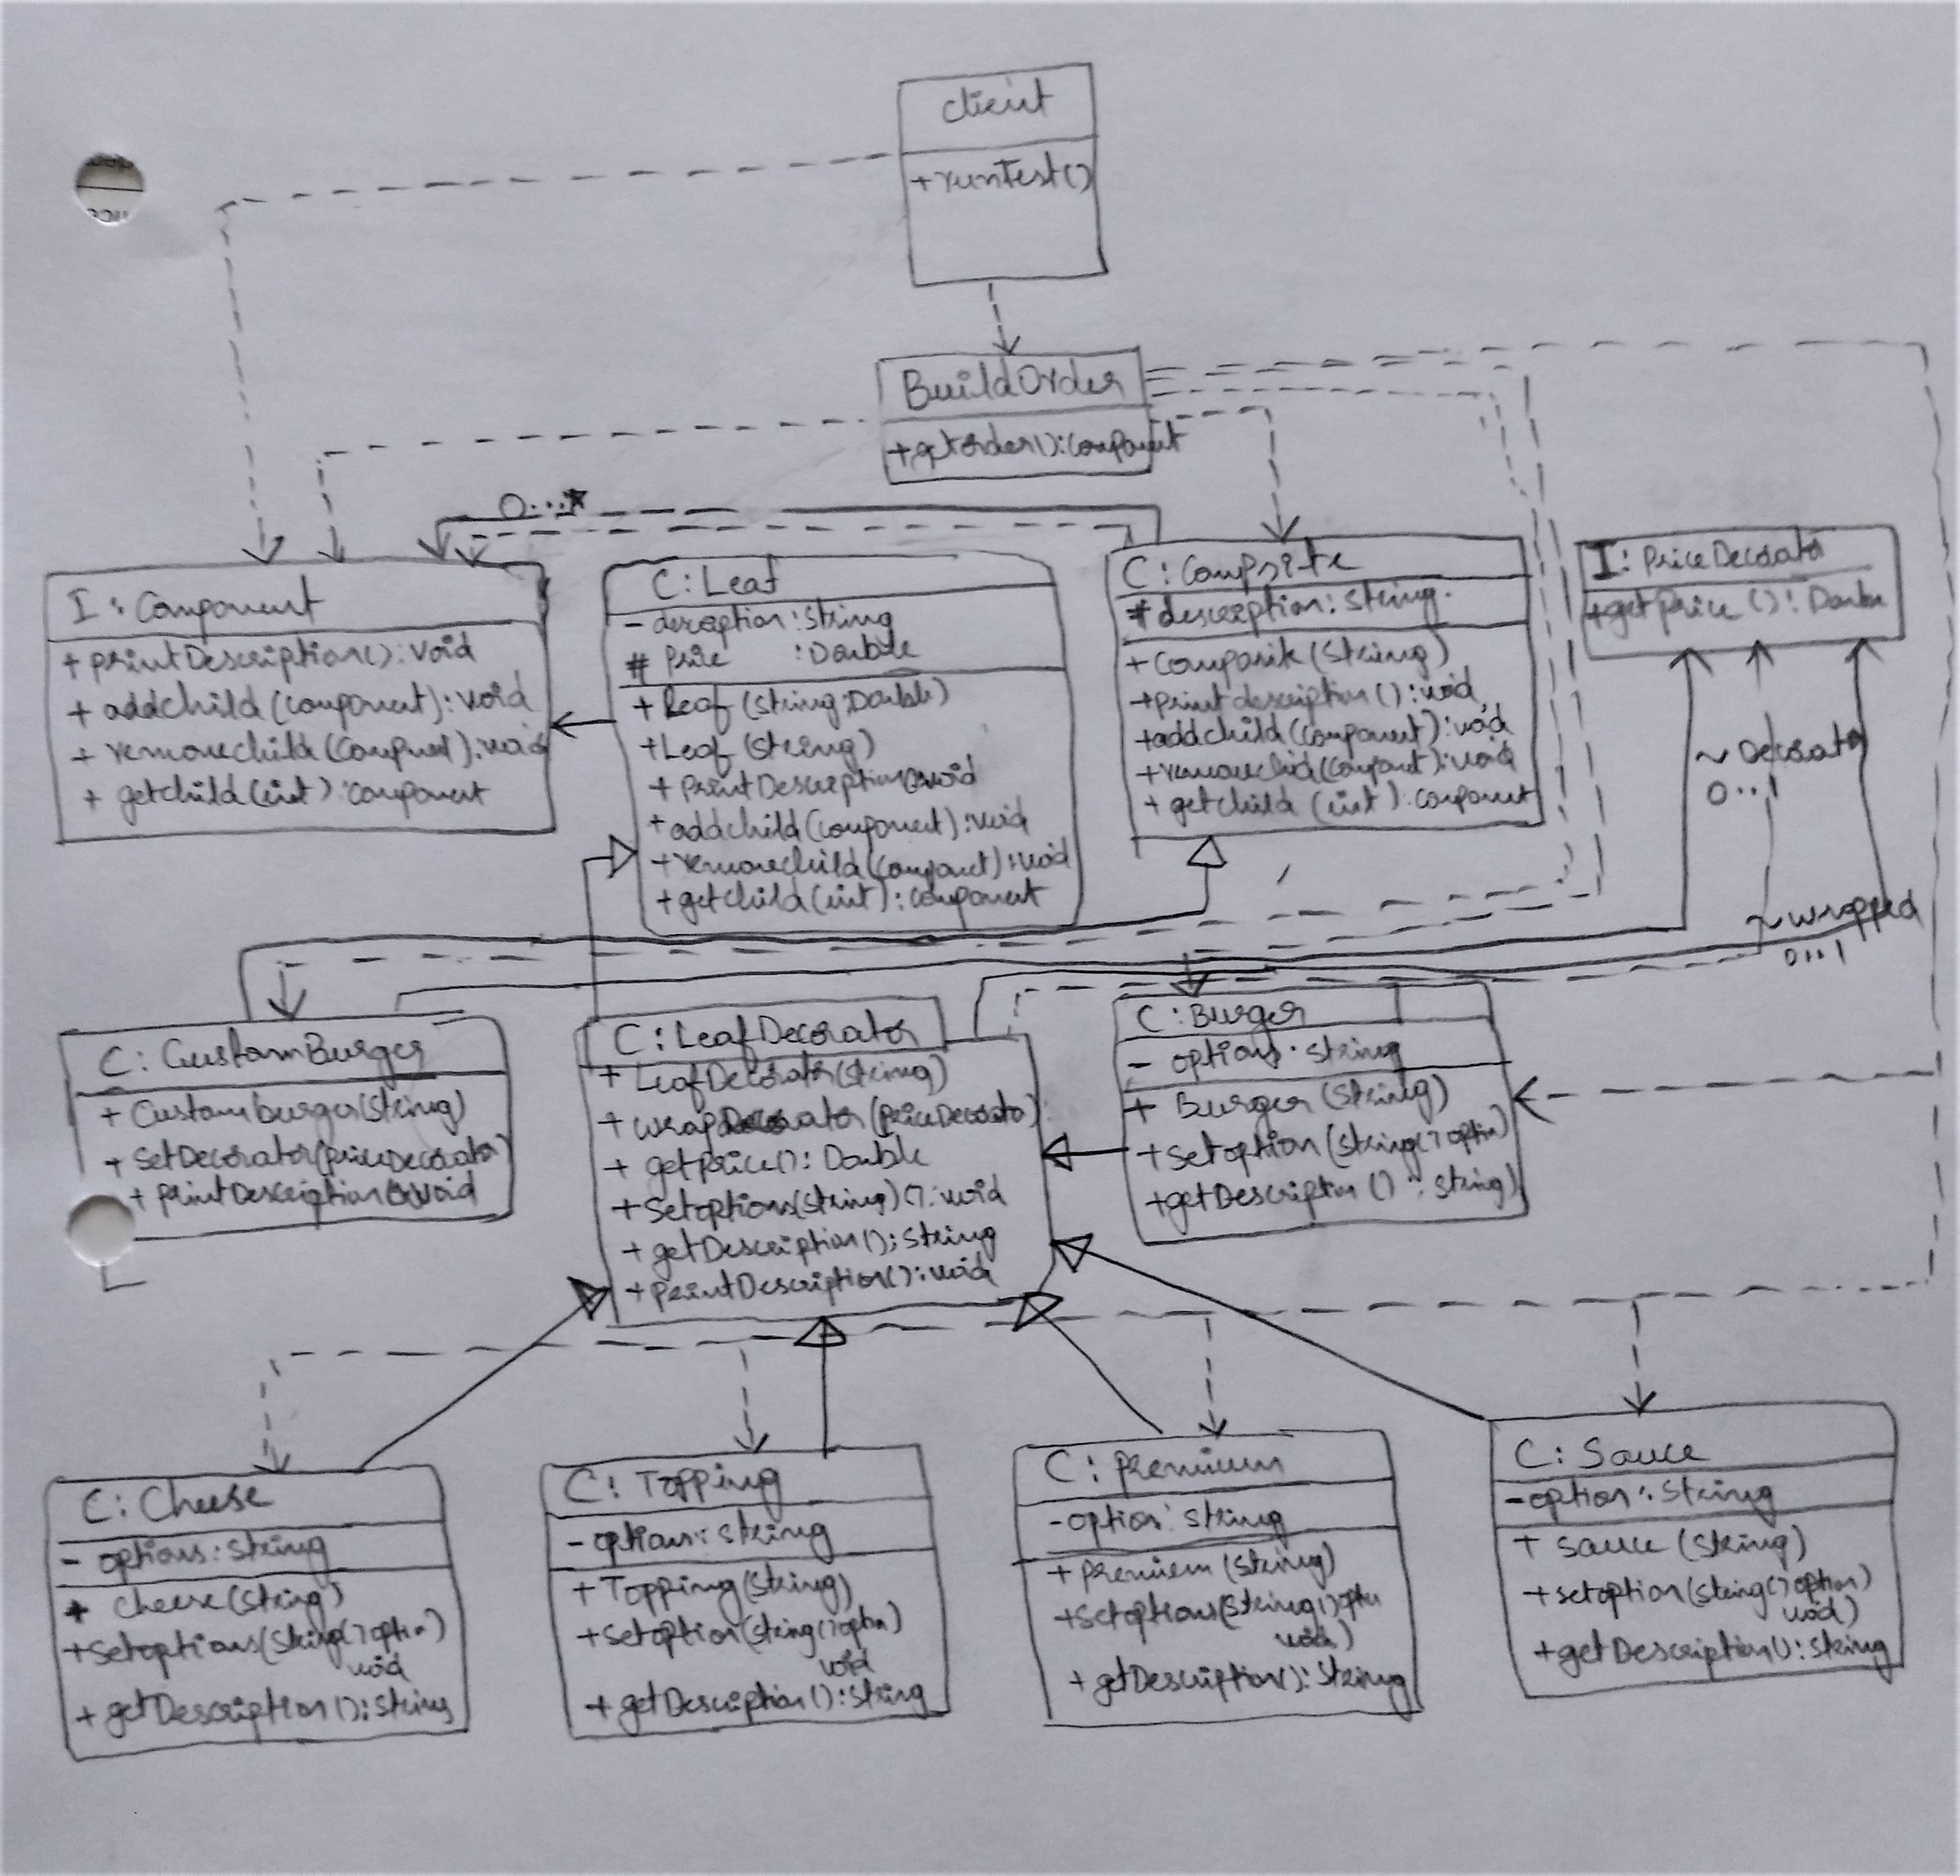 client
+runTest()
BuildOrder
+getorder():component
0...*
I: Component
+ printDescription(): void
+ addchild(component): void
+ removechild(Compnent):void
+ getchild(int):component
C:Leaf
- description:String
# Price :Double
+ Leaf (string;Double)
+Leaf (string)
+ printDescription():void
+addchild(component):void
+removechild(component):void
+getchild(int):component
C:Compsite
# description: String.
+ Composite(String)
+print description():void
+addchild(component):void
+removechild(component):void
+ getchild (int).component
I: PriceDecorator
+getprice (): Double
~ Decorator
0..1
~wrapped
0..1
C:CustomBurger
+ Customburger(string)
+ setDecorator(priceDecorator)
+ printDescription():void
C:LeafDecorator
+ LeafDecorator(string)
+ wrapDecorator(priceDecorator):
+ getprice(): Double
+ Setoptions(string)(): void
+ getDescription(); String
+ printDescription():void
C:Burger
- options: string
+ Burger(string)
+setoption(string() option)
+getDescription () : string)
C:Cheese
- options:String
+ cheese(string)
+setoptions(string() option)
void
+ getDescription():String
C: Topping
- options: string
+ Topping(string)
+setoption(string() option)
void
+ getDescription():String
C: premium
-option: string
+ premium(string)
+setoptions(string()option
void)
+ getDescription():String
C: Sauce
-option: String
+ sauce (string)
+setoption(string() option)
void)
+getDescription():String